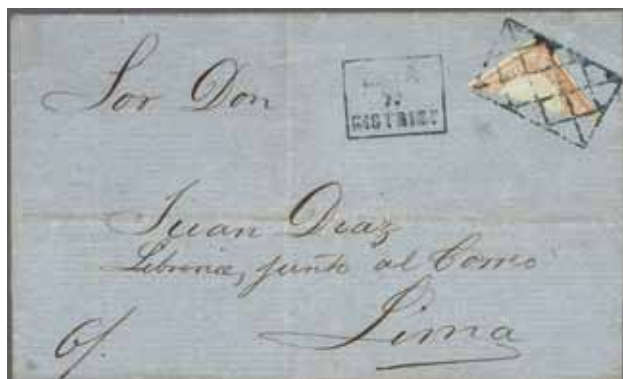 Sor Don
DISTRICT
Juan Diaz
Libreria, junto al Correo
Lima
6/.